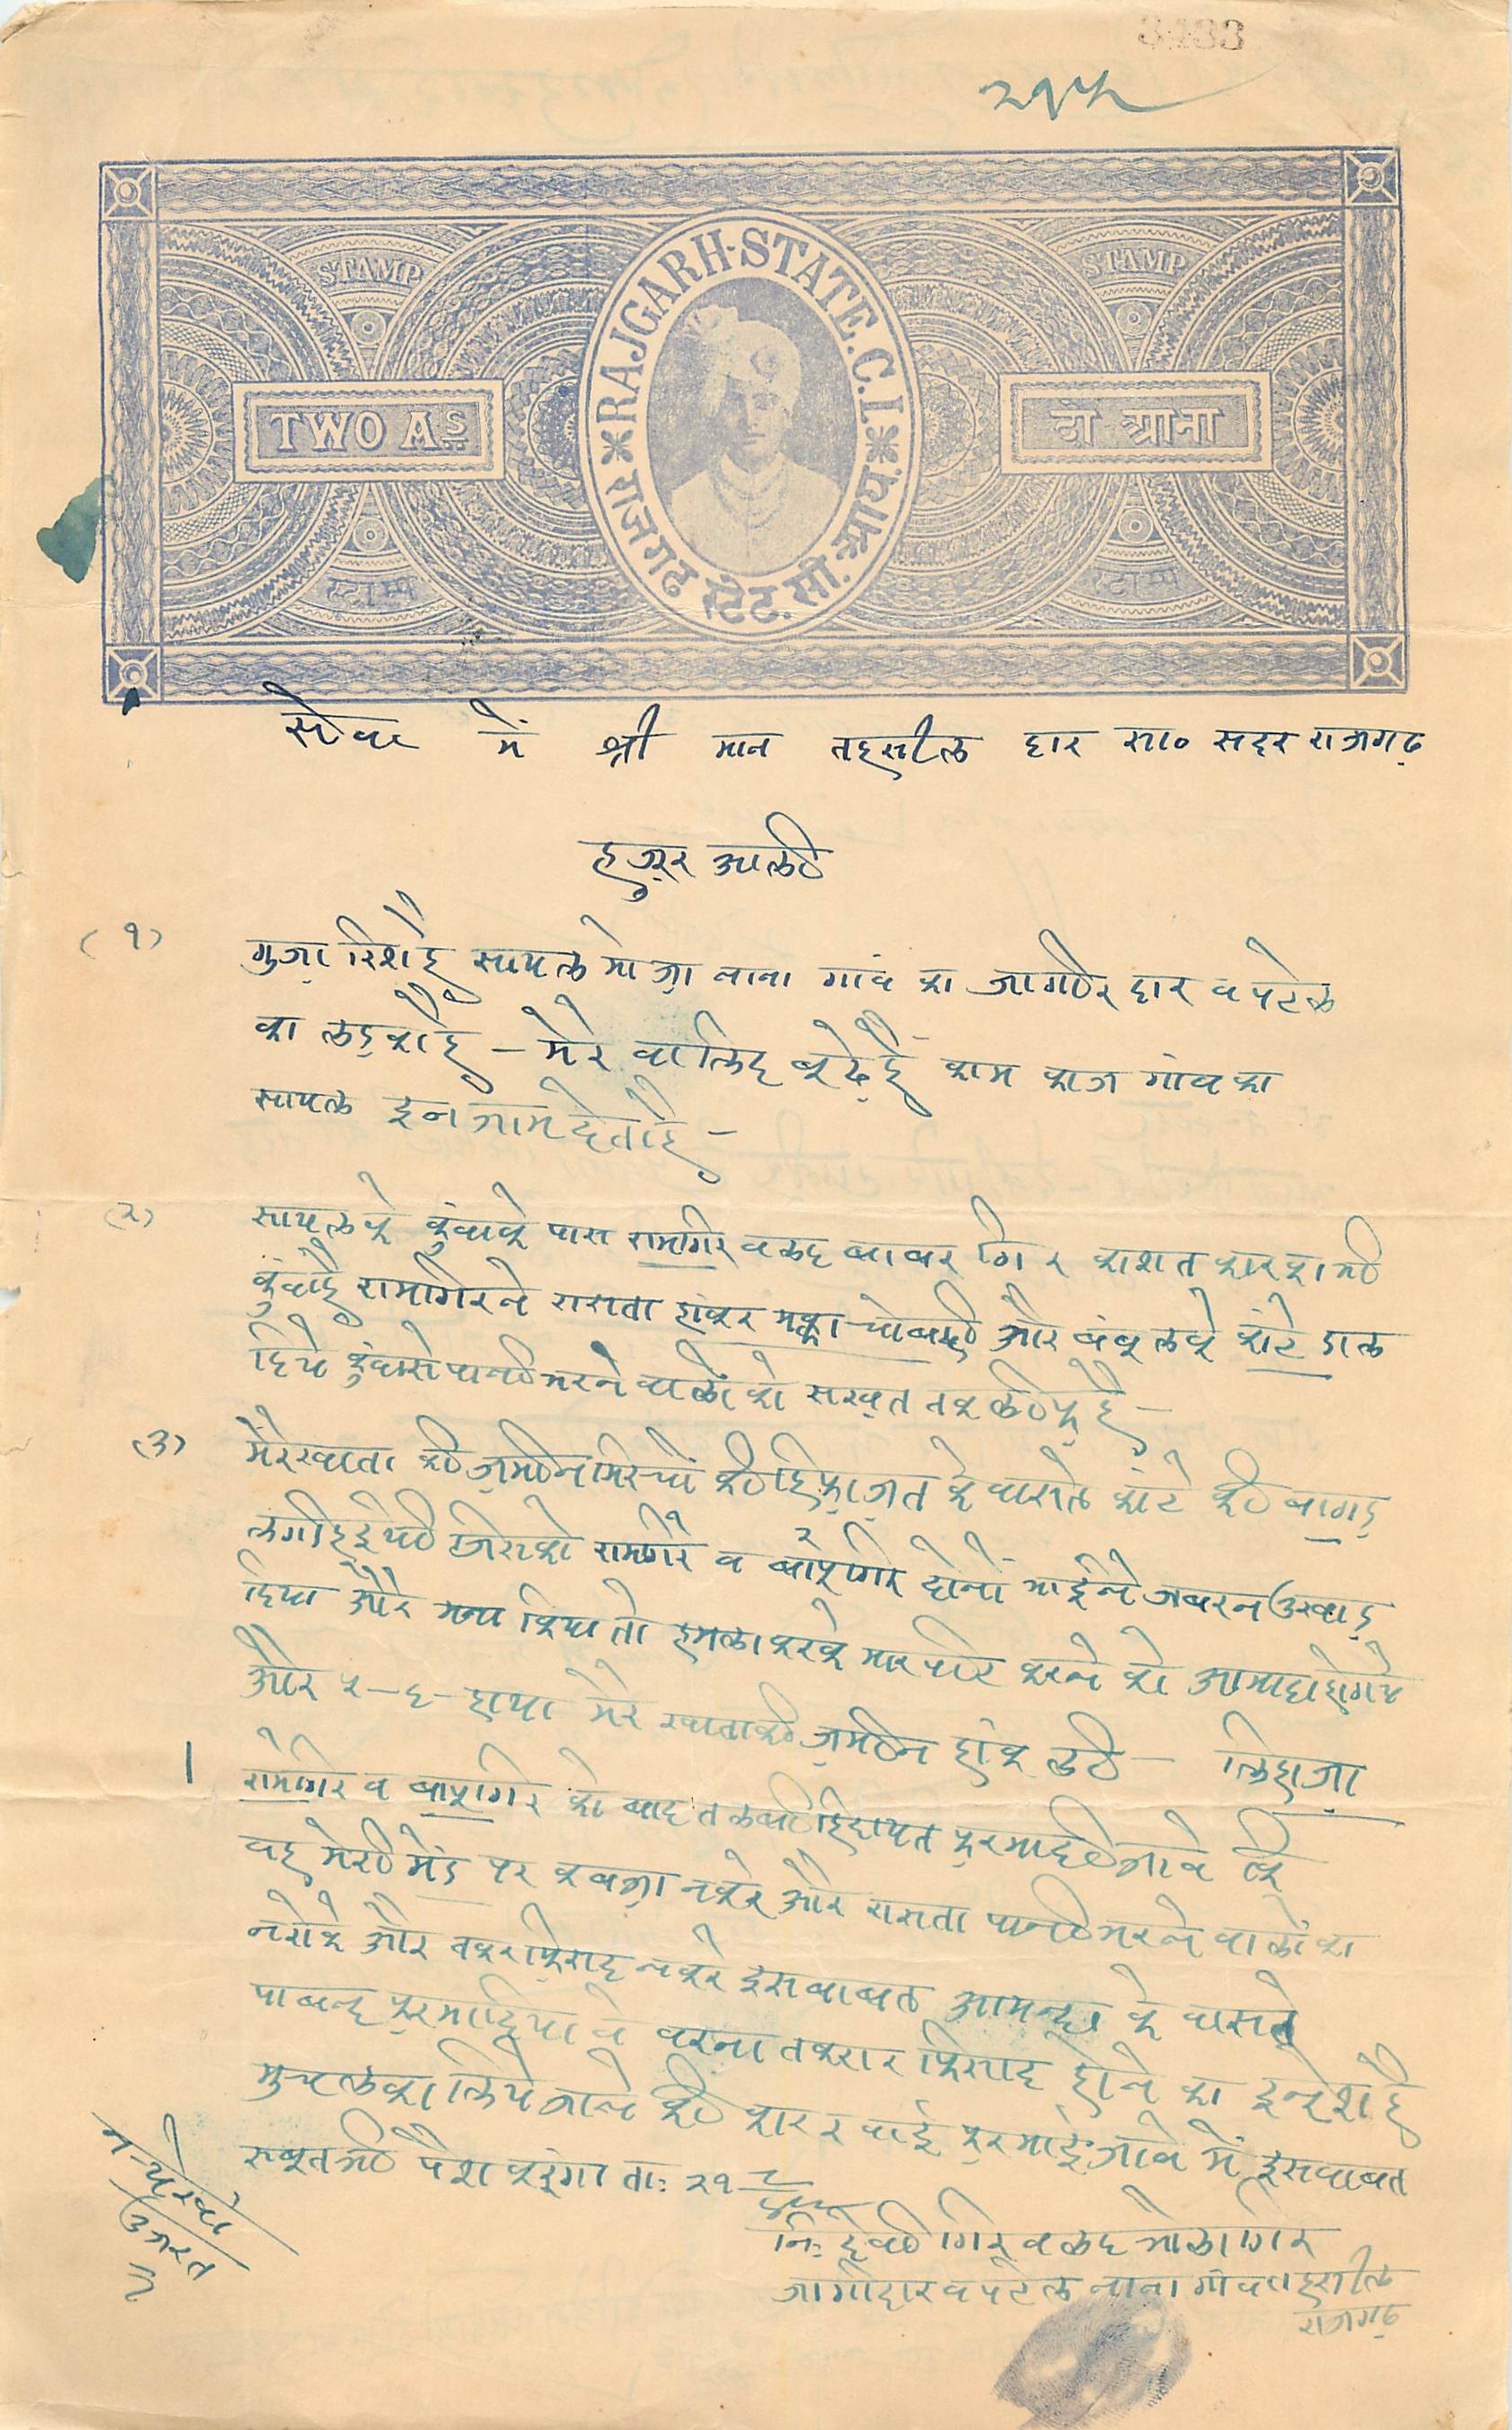 3483
STAMP STAMP
RAJGARH-STATE.C.I.
TWO As
दो आना
राजगढ स्टेट. सी. आय.
स्टाम्प स्टाम्प
सेवा में श्री मान तहसील दार सा० सदर राजगढ़
हुज़ूर आली
(१) गुज़ारिश है सायल मोज़ा नाना गांव का जागीर दार व पटेल
का लड़का है - मेरे वालिद बूढ़े हैं काम काज गांव का
सायल इनजाम देता है -
(२) सायल के कुंवा के पास रामगिर वलद बाबर गिर काशतकार का भी
कुंवा है रामगिर ने रासता हांककर मक्का चोबदी और बंबूल के कांटे डाल
दिये कुंवा से पानी भरने वालों को सख़त तकलीफ़ है -
(३) मेरे खाता की ज़मीन मिरचों की हिफ़ाज़त के वासते कांटे की बागड़
लगी हुई थी जिसको रामगिर व बापूगिर दोनों भाई ने जबरन उखाड़
दिया और मना किया तो हमला करके मारपीट करने को आमादा होगये
और ५-६- हाथ मेरे खाता की ज़मीन हांक ली - लिहाज़ा
रामगिर व बापूगिर को बाद तलबी हिदायत फ़रमा दी जावे कि
वह मेरी मेंड पर कबज़ा न करे और रासता पानी भरने वालों का
न रोके और तकरार फ़िसाद न करे इस बाबत आयनदा के वासते
पाबन्द फ़रमा दिया जावे वरना तकरार फ़िसाद होने का इन्देशा है
मुचलका लिये जाने की काररवाई फ़रमाई जावे में इस बाबत
सबूत भी पेश करूंगा ता: २१
नि: देवी गिर वलद भोलागिर
जागीदार व पटेल नाना गांव तहसील
राजगढ़